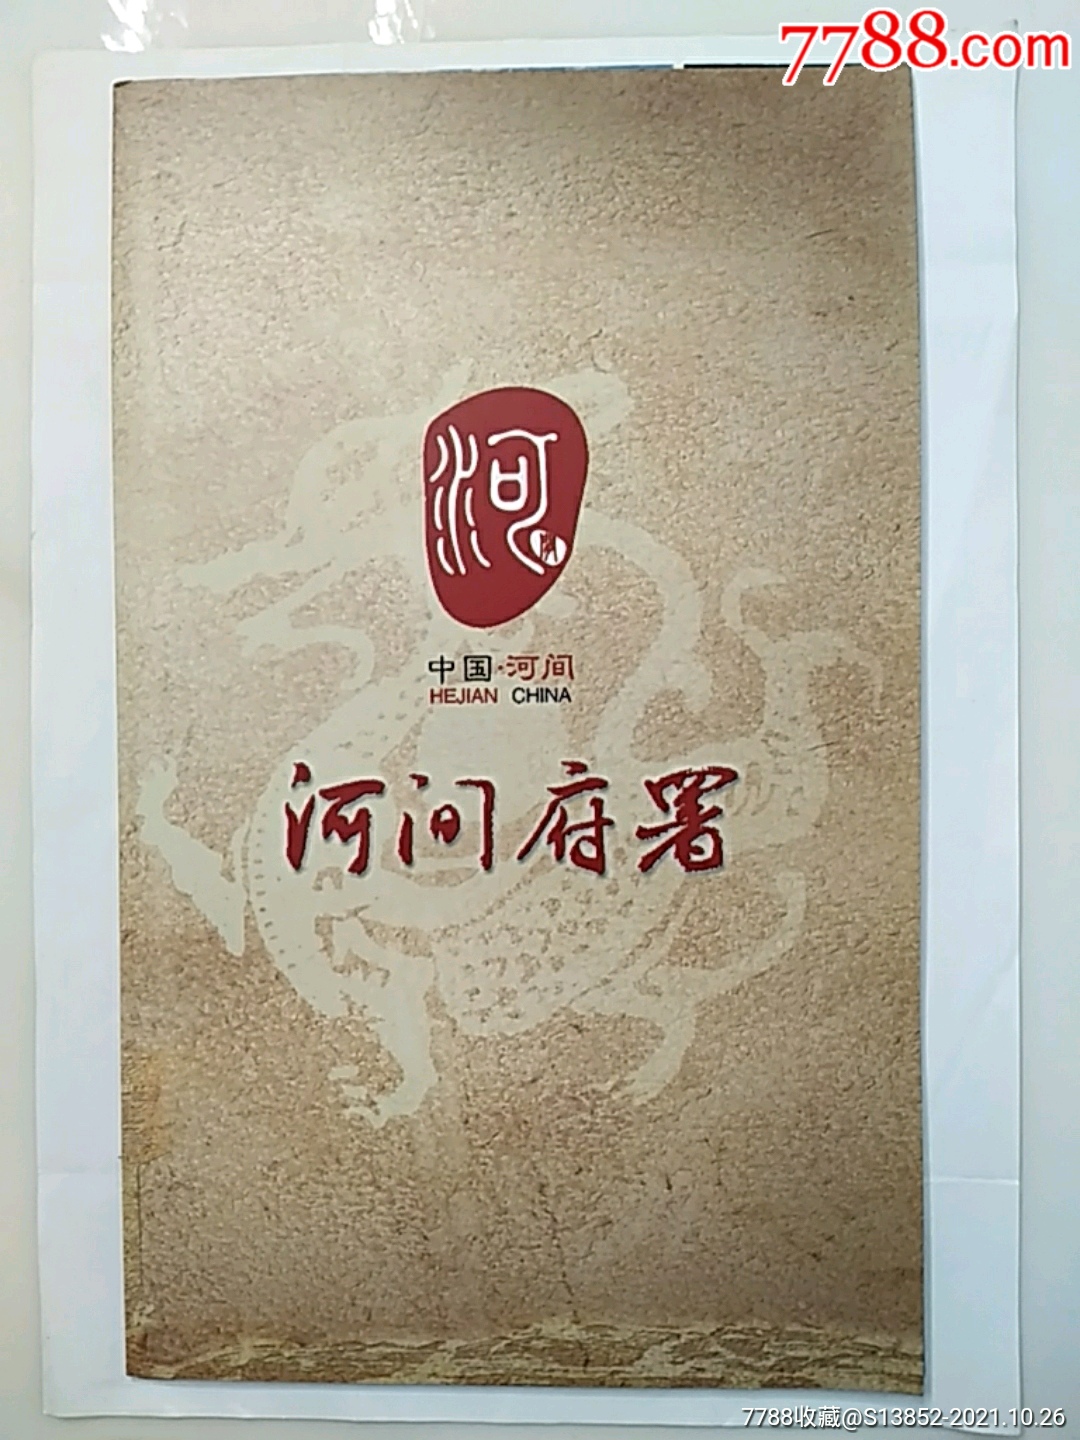 7788.com
河
中国·河间
HEJIAN CHINA
河间府署
7788收藏@S13852-2021.10.26